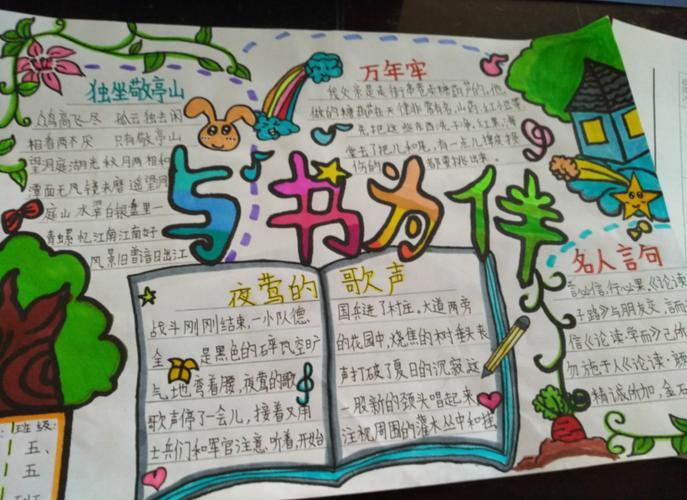 独坐敬亭山
鸟高飞尽 孤云独去闲
相看两不厌 只有敬亭山
望洞庭湖光秋月两相和
潭面无风镜未磨遥望洞
庭山水翠白银盘里一
青螺忆江南江南好
风景旧曾谙日出江
万年牢
我父亲是走街串巷卖糖葫芦的,他
做的糖葫芦在天津非常有名,山药,红小豆等
先把这些东西洗干净,红果,海
棠去了把儿和尾,有一点儿
伤的 都要挑出来。
与书为伴
夜莺的歌声
战斗刚刚结束,一小队德
全 是黑色的碎
气,地 弯着腰,夜莺的歌
歌声停了一会儿,接着又用
士兵们和军官注意听着,开始
国兵进了村庄。大道两旁
的花园中,烧焦的树垂头丧
声打破了夏日的沉寂这
一股新的劲头唱起来
注视周围的灌木丛中和挂
名人言句
言必信,行必果《论语
子路》与朋友交,言而
信《论语·学而》己所
勿施于人《论语·颜
精诚所加,金石
班级:
五、
五